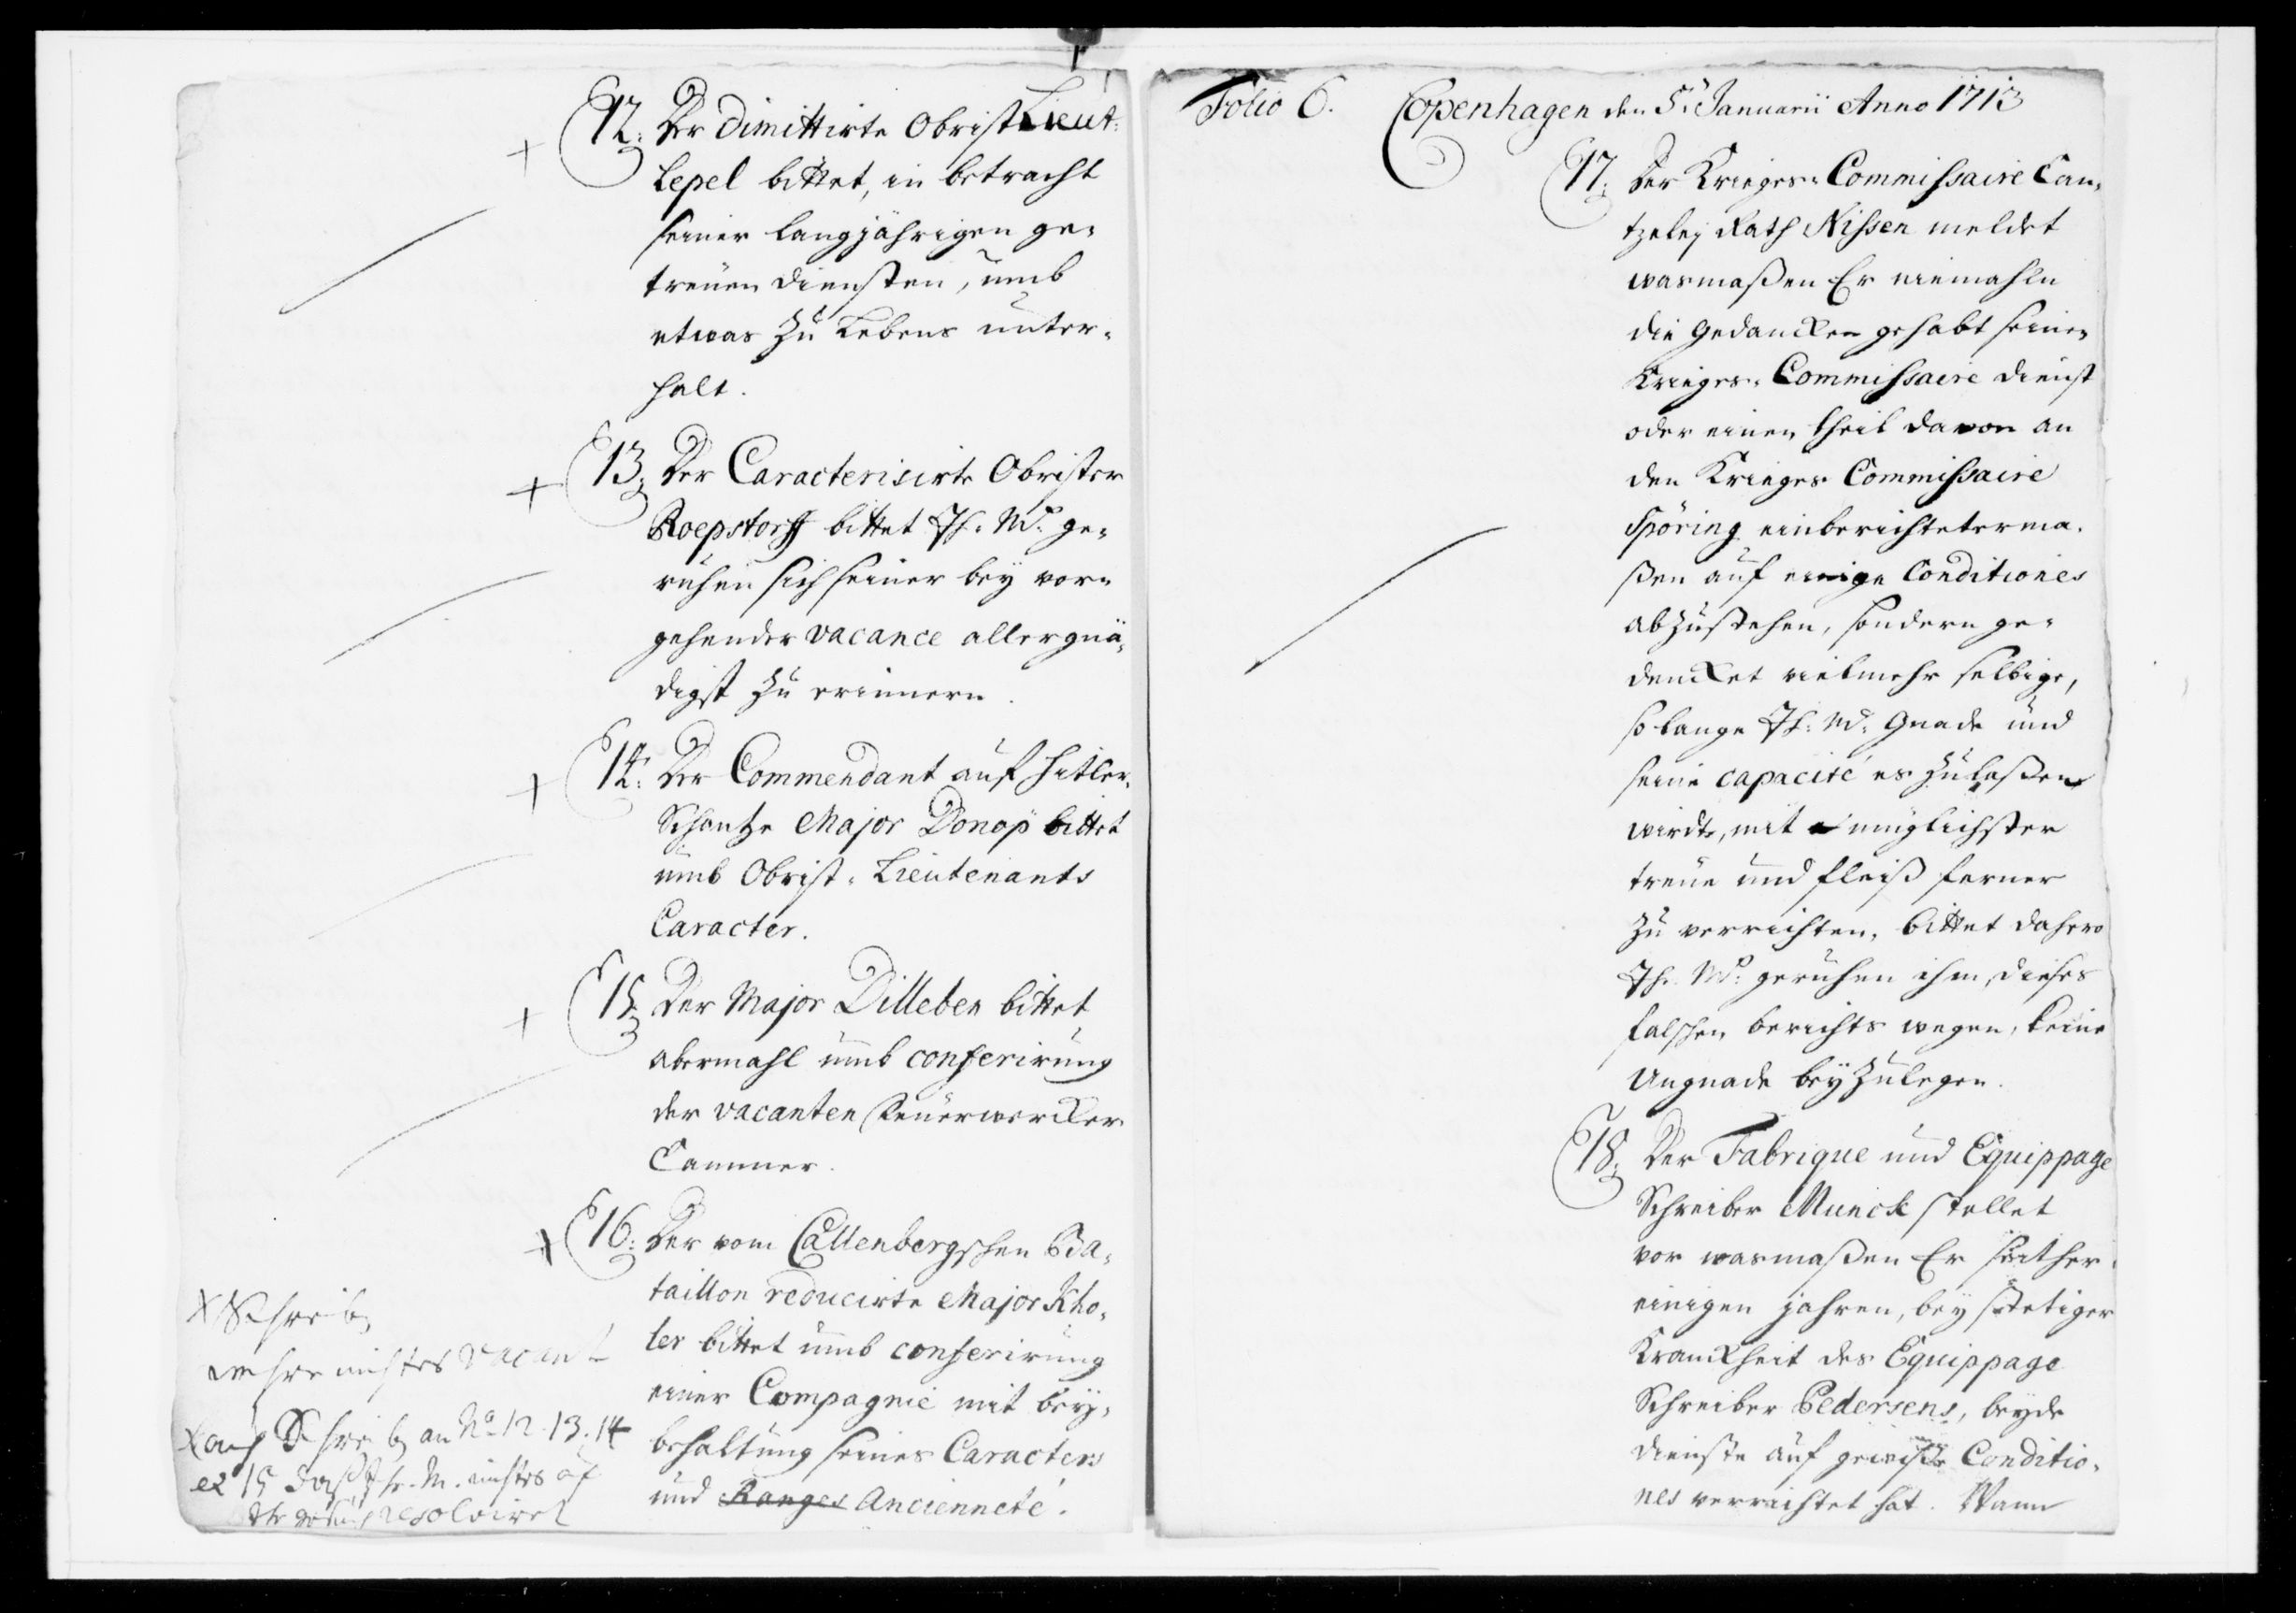 12. Der dimittirte Obrist Lieut:
Lepel bittet, in betracht
seiner langjährigen ge-
treuen diensten, umb
etwas zu Lebens unter-
halt.
13. Der Caracterisirte Obrister
Roepstorff bittet Ih: Mt: ge-
ruhen sich seiner bey vor-
gehender vacance allergnä-
digst zu erinnern.
14. Der Commendant auf Hitler-
Schantze Major Donop bittet
umb Obrist-Lieutenants
Caracter.
15. Der Major Dilleben bittet
abermahl umb conferirung
der vacanten Feuerwercker
Cammer.
16. Der vom Callenbergschen Ba-
taillon reducirte Major Kho-
ler bittet umb conferirung
einer Compagnie mit bey-
behaltung seines Caracters
und Ranges Ancienneté.
X Schreib
wehre nichtes vacant
X auch Schreib an No 12. 13. 14
et 15 daß Ihr. M. nichtes auf
resolviret
Folio 6. Copenhagen den 5. Januarii Anno 1713
17. Der Krieges-Commissaire Can-
tzeley Rath Nissen meldet
wasmaßen Er niemahln
die Gedancken gehabt seinen
Krieges-Commissaire dienst
oder einen theil davon an
den Krieges Commissaire
Spöring einberichteterma-
ßen auf einige Conditiones
abzustehen, sondern ge-
dencket vielmehr selbige,
so lange Ih: Mt: Gnade und
seine capacité es zulaßen
wirdt, mit müglichster
treue und fleiß ferner
zu verrichten, bittet dahero
Ih. Mt: geruhen ihm, dieses
falschen berichts wegen, keine
Ungnade beyzulegen.
18. Der Fabrique und Equippage
Schreiber Munck stellet
vor wasmaßen Er seither
einigen jahren, bey stetiger
Kranckheit des Equippage
Schreiber Pedersens, beyde
dienste auf gewiße Conditio-
nes verrichtet hat. Wann